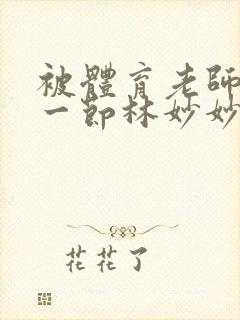 被體育老師
一節林妙妙
花花了